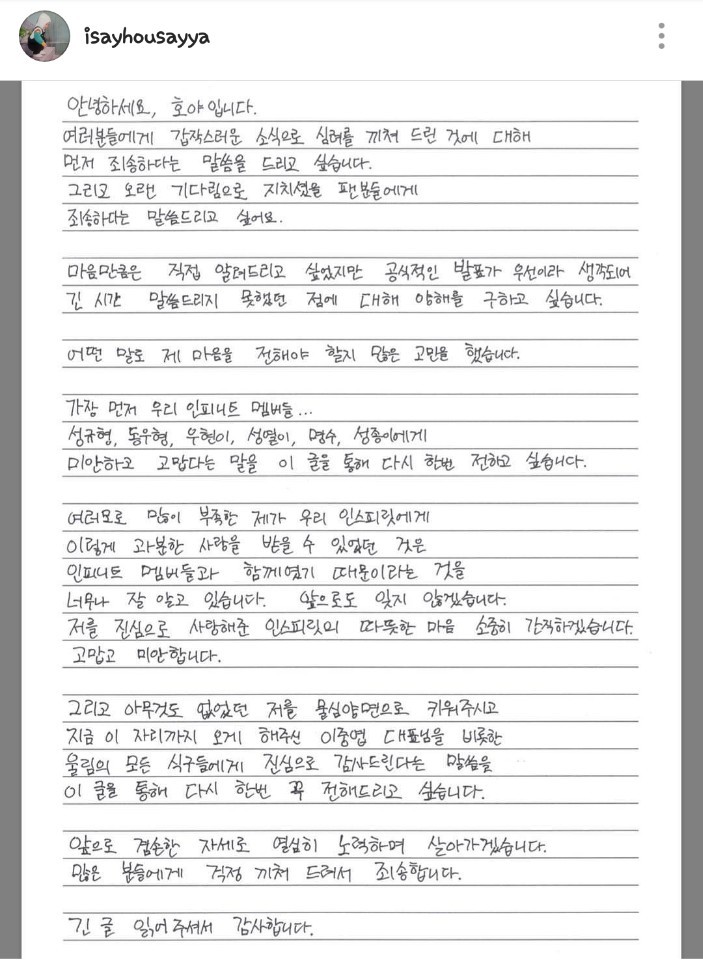 isayhousayya
안녕하세요, 호야입니다.
여러분들에게 갑작스러운 소식으로 심려를 끼쳐 드린 것에 대해
먼저 죄송하다는 말씀을 드리고 싶습니다.
그리고 오랜 기다림으로 지치셨을 팬분들에게
죄송하다는 말씀드리고 싶어요.
마음만큼은 직접 알려드리고 싶었지만 공식적인 발표가 우선이라 생각되어
긴 시간 말씀드리지 못했던 점에 대해 양해를 구하고 싶습니다.
어떤 말로 제 마음을 전해야 할지 많은 고민을 했습니다.
가장 먼저 우리 인피니트 멤버들...
성규형, 동우형, 우현이, 성열이, 명수, 성종이에게
미안하고 고맙다는 말을 이 글을 통해 다시 한번 전하고 싶습니다.
여러모로 많이 부족한 제가 우리 인스피릿에게
이렇게 과분한 사랑을 받을 수 있었던 것은
인피니트 멤버들과 함께였기 때문이라는 것을
너무나 잘 알고 있습니다. 앞으로도 잊지 않겠습니다.
저를 진심으로 사랑해준 인스피릿의 따뜻한 마음 소중히 간직하겠습니다.
고맙고 미안합니다.
그리고 아무것도 없었던 저를 물심양면으로 키워주시고
지금 이 자리까지 오게 해주신 이중엽 대표님을 비롯한
울림의 모든 식구들에게 진심으로 감사드린다는 말씀을
이 글을 통해 다시 한번 꼭 전해드리고 싶습니다.
앞으로 겸손한 자세로 열심히 노력하며 살아가겠습니다.
많은 분들에게 걱정 끼쳐 드려서 죄송합니다.
긴 글 읽어주셔서 감사합니다.